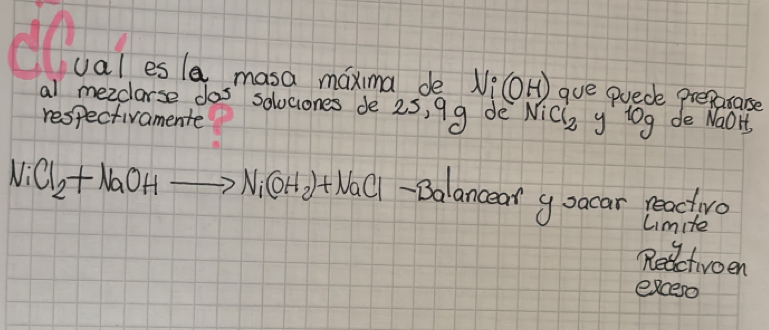 ¿Cuál es la masa máxima de Ni(OH) que puede prepararse
al mezclarse dos soluciones de 25,9g de NiCl₂ y 10g de NaOH,
respectivamente?
NiCl₂ + NaOH → Ni(OH₂) + NaCl - Balancear y sacar reactivo
Limite
y
Reactivo en
exceso